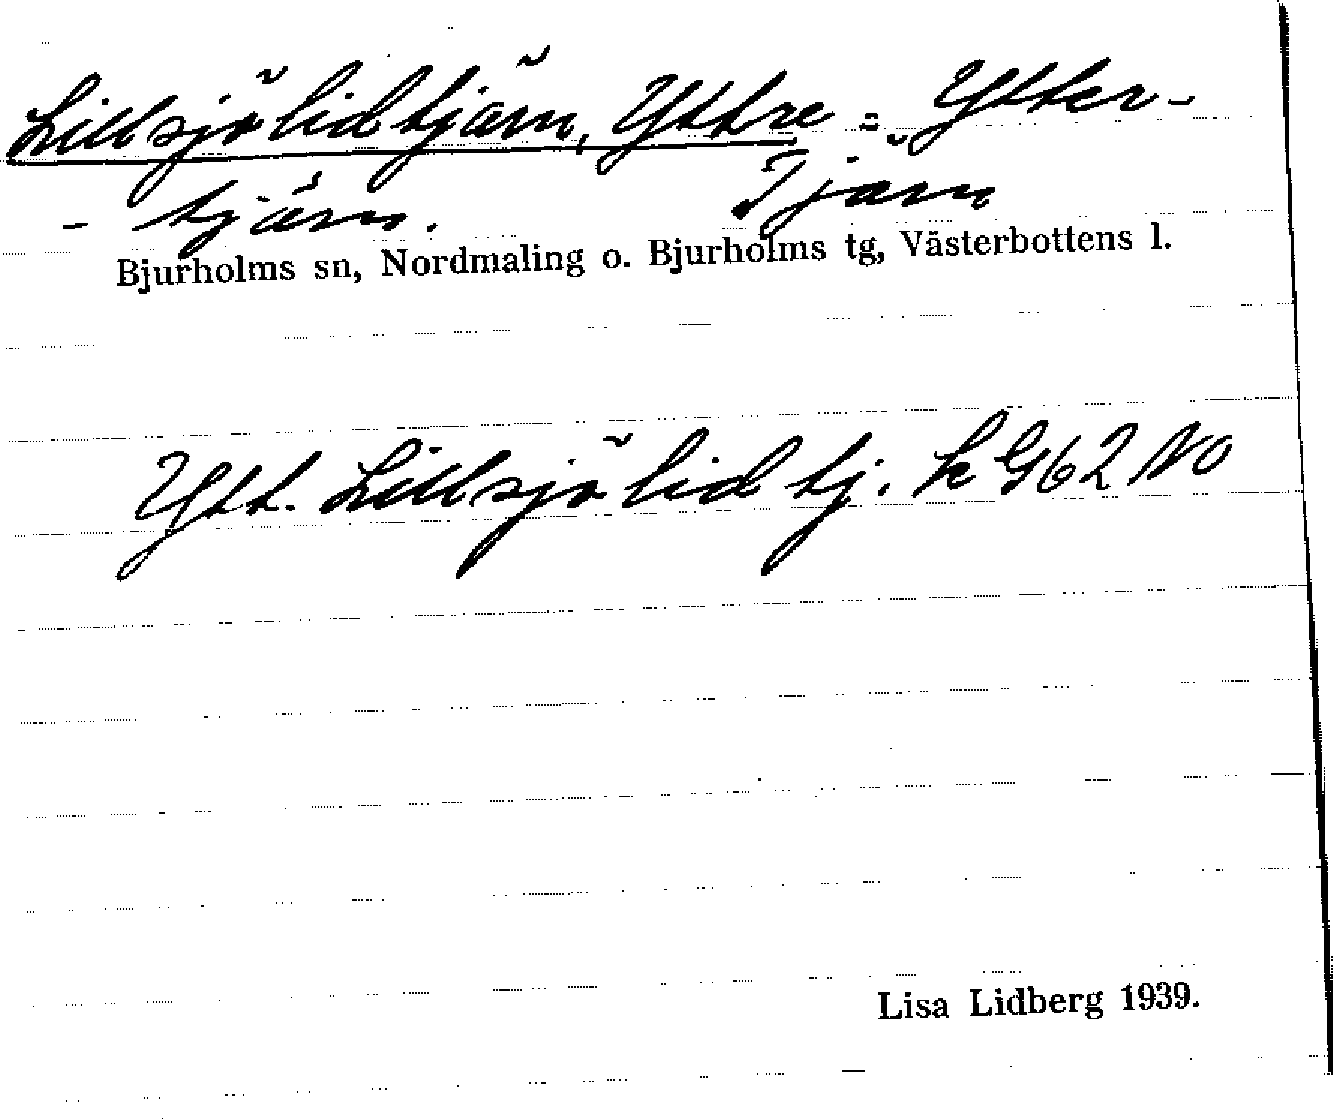 Lillsjölidtjärn, Yttre = Ytter-
- tjärn. Tjärn
Bjurholms sn, Nordmaling o. Bjurholms tg, Västerbottens l.
Ytt. Lillsjölidtj. k G62 NO
Lisa Lidberg 1939.